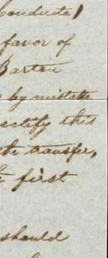 Conducted
favor of
Barton
by mistake
rectify this
the transfer,
first
should